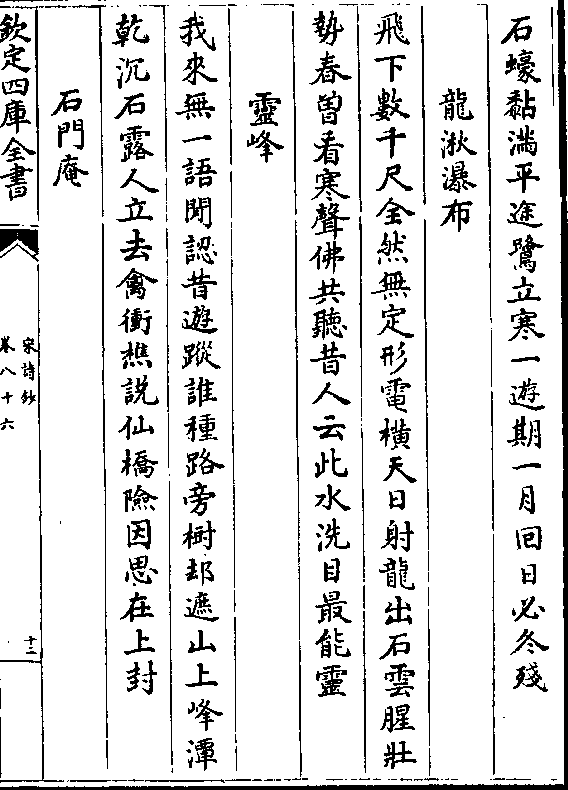 石蠔黏滿平途鷺立寒一遊期一月回日必冬殘
龍湫瀑布
飛下數千尺全然無定形電橫天日射龍出石雲腥壯
勢春曽看寒聲佛共聽昔人云此水洗目最能靈
靈峰
我來無一語聞認昔遊蹤誰種路旁樹却遮山上峰潭
乾沉石露人立去禽衝樵説仙橋險因思在上封
石門庵
欽定四庫全書
宋詩鈔
卷八十六
十二